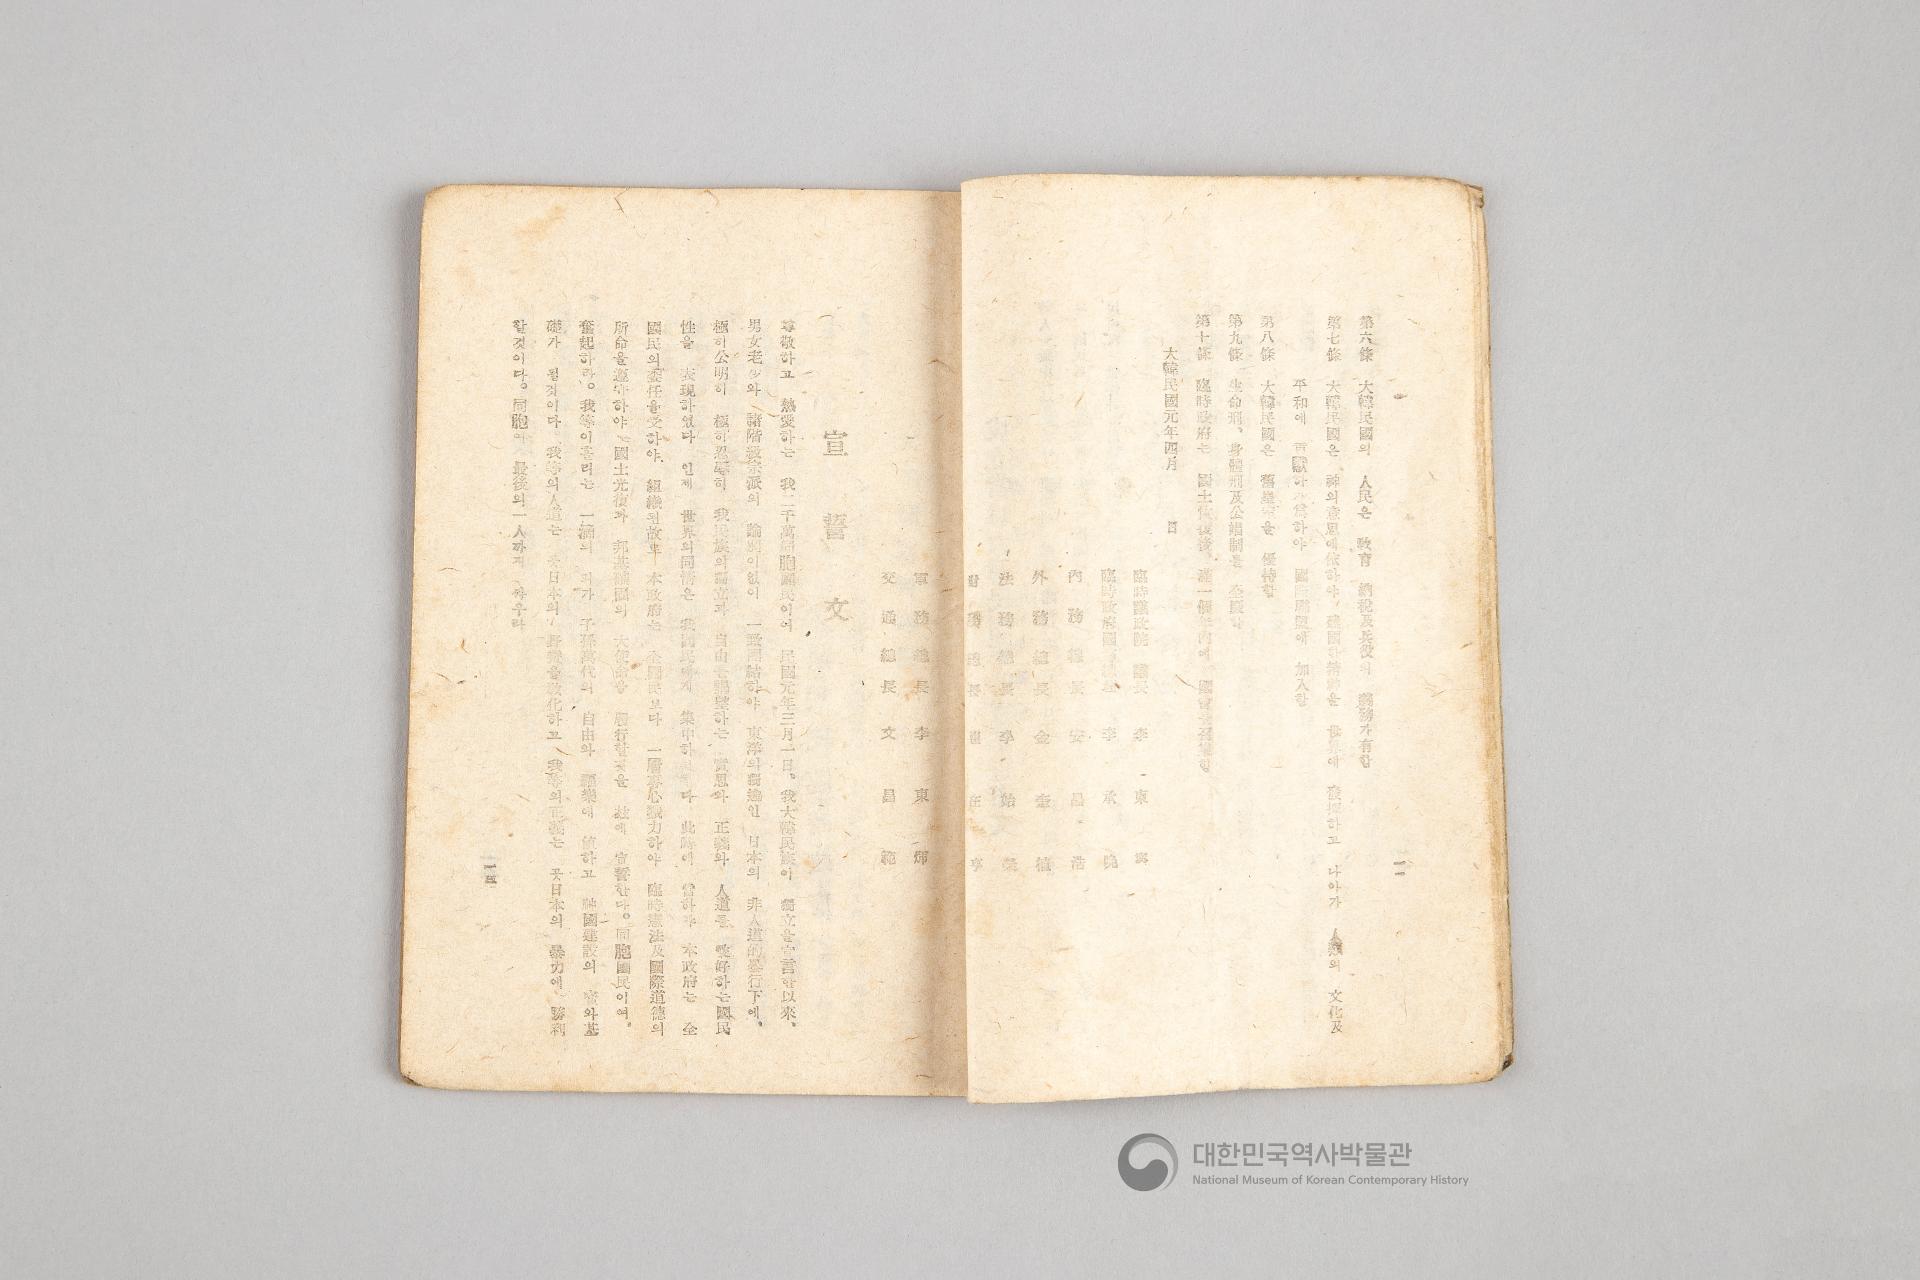 第六條 大韓民國의 人民은 教育 納稅及兵役의 義務가有함
第七條 大韓民國은 神의意思에依하야 建國한精神을 世界에 發揮하고 나아가 人類의 文化及
平和에 貢獻하기爲하야 國際聯盟에 加入함
第八條 大韓民國은 舊皇室을 優待함
第九條 生命刑、身體刑及公娼制를 全廢함
第十條 臨時政府는 國土恢復後 滿一個年內에 國會를召集함
大韓民國元年四月 日
臨時議政院 議長 李東寧
臨時政府國務總理 李承晩
內務總長 安昌浩
外務總長 金奎植
法務總長 李始榮
財務總長 崔在亨
一二
軍務總長 李東輝
交通總長 文昌範
宣誓文
尊敬하고 熱愛하는 我二千萬同胞國民이여 民國元年三月一日、我大韓民族이 獨立을宣言한以來、
男女老少와 諸階級宗派의 論別이없이 一致團結하야 東洋의獨逸인 日本의 非人道的暴行下에、
極히公明히 極히忍辱히 我民族의獨立과 自由를渴望하는 實思와 正義와 人道를 愛好하는國民
性을 表現하였다 인제 世界의同情은 我國民에게 集中하였다 此時에 當하야 本政府는 全
國民의委任을受하야 組織된故로 本政府는 全國民보다 一層專心戮力하야 臨時憲法及國際道德의
所命을遵守하야 國土光復과 邦基確國의 大使命을 履行할것을 玆에 宣誓한다。同胞國民이여、
奮起하라。我等이흘리는 一滴의 피가 子孫萬代의 自由와 福樂에 値하고 神國建設의 寶와基
礎가 될것이다 我等의人道는 곳日本의 野蠻을敎化하고 我等의正義는 곳日本의 暴力에 勝利
할것이다。同胞여 最後의一人까지 싸우라
一三
대한민국역사박물관
National Museum of Korean Contemporary History